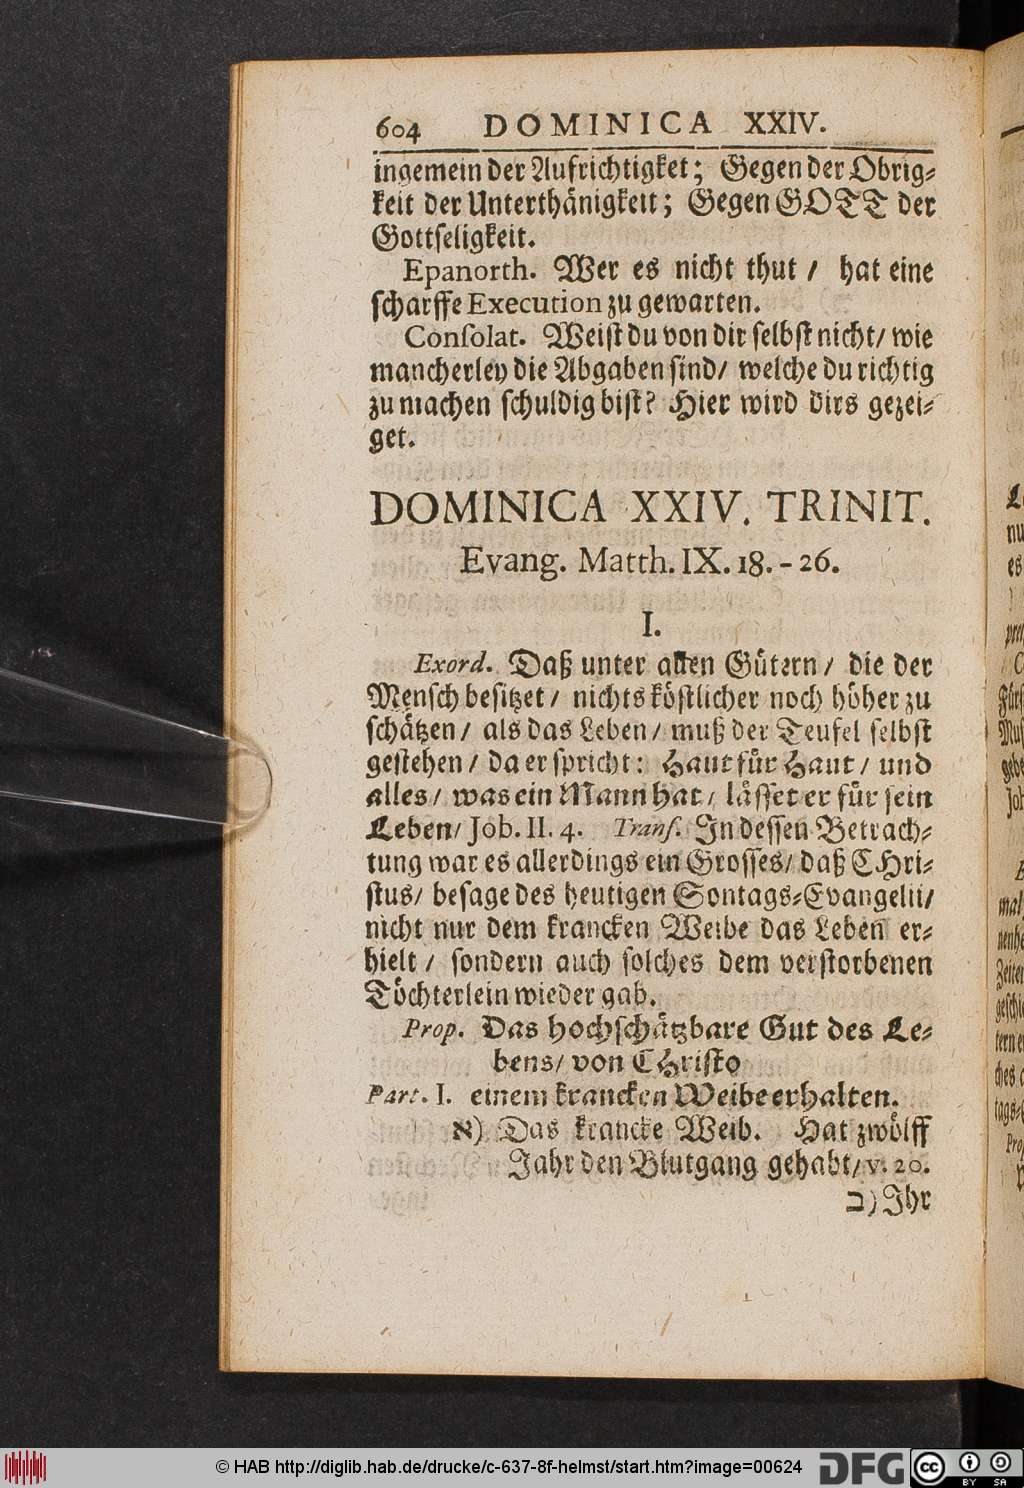 604 DOMINICA XXIV.
ingemein der Aufrichtigket; Gegen der Obrig⸗
keit der Unterthänigkeit; Gegen GOTT der
Gottseligkeit.
Epanorth. Wer es nicht thut / hat eine
scharffe Execution zu gewarten.
Consolat. Weist du von dir selbst nicht/ wie
mancherley die Abgaben sind/ welche du richtig
zu machen schuldig bist? Hier wird dirs gezei⸗
get.
DOMINICA XXIV. TRINIT.
Evang. Matth. IX. 18. - 26.
I.
Exord. Daß unter allen Gütern / die der
Mensch besitzet / nichts köstlicher noch höher zu
schätzen / als das Leben / muß der Teufel selbst
gestehen / da er spricht: Haut für Haut / und
alles / was ein Mann hat / lässet er für sein
Leben/ Job. II. 4. Trans. In dessen Betrach⸗
tung war es allerdings ein Grosses/ daß CHri⸗
stus/ besage des heutigen Sontags⸗Evangelii/
nicht nur dem krancken Weibe das Leben er⸗
hielt / sondern auch solches dem verstorbenen
Töchterlein wieder gab.
Prop. Das hochschätzbare Gut des Le⸗
bens/ von CHristo
Part. I. einem krancken Weibe erhalten.
א) Das krancke Weib. Hat zwölff
Jahr den Blutgang gehabt/ v. 20.
ב) Ihr
© HAB http://diglib.hab.de/drucke/c-637-8f-helmst/start.htm?image=00624 DFG cc BY SA